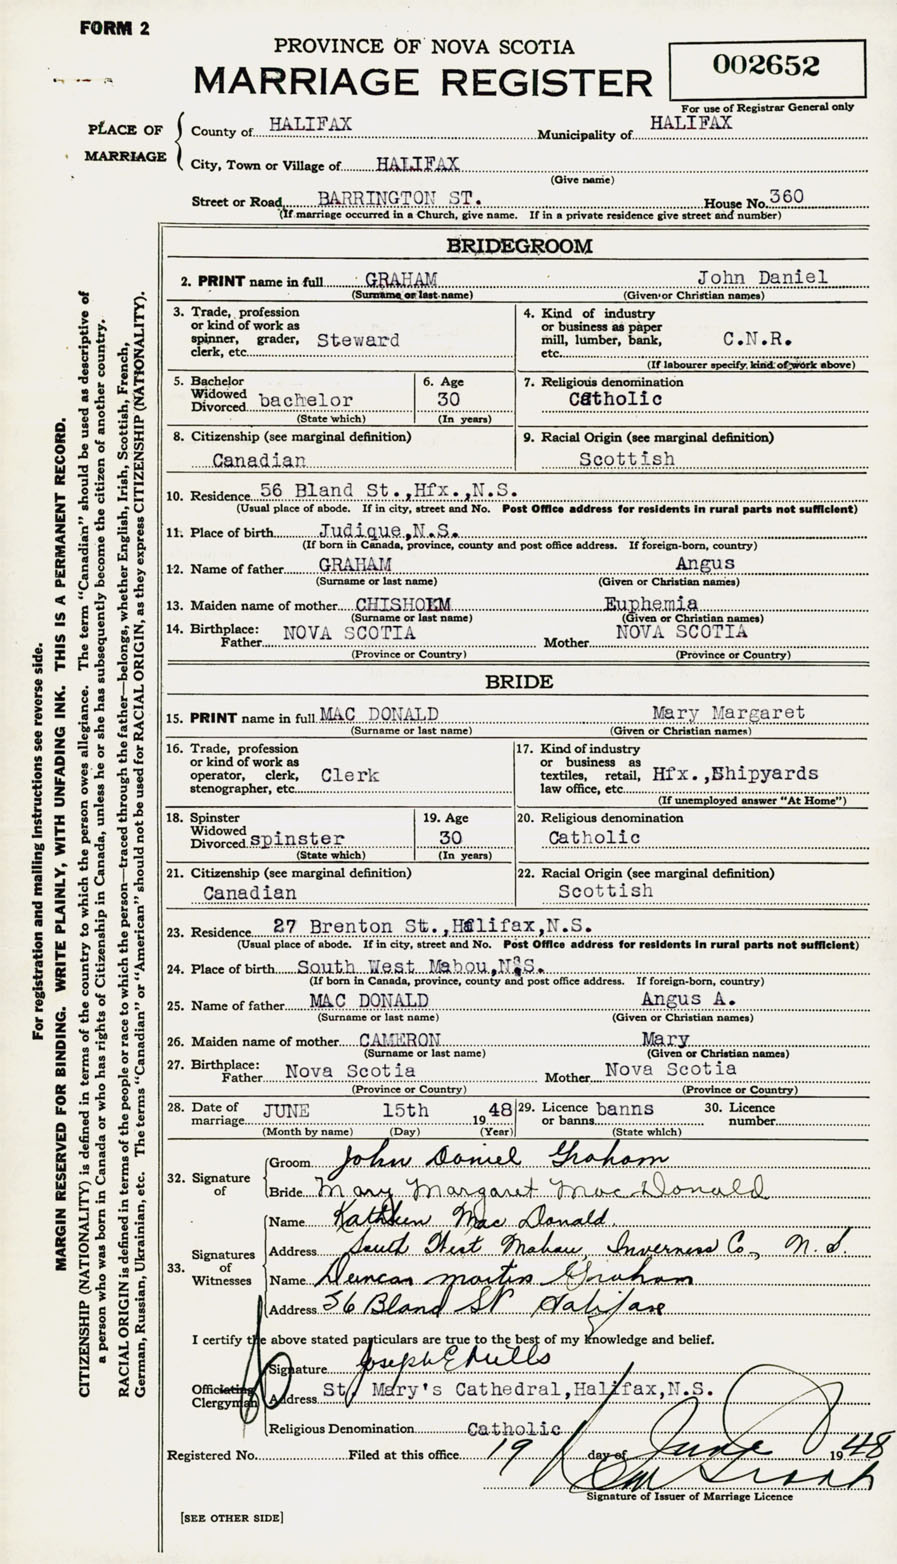 FORM 2
PROVINCE OF NOVA SCOTIA
MARRIAGE REGISTER
002652
For use of Registrar General only
PLACE OF MARRIAGE
County of HALIFAX Municipality of HALIFAX
City, Town or Village of HALIFAX
(Give name)
Street or Road BARRINGTON ST. House No. 360
(If marriage occurred in a Church, give name. If in a private residence give street and number)
BRIDEGROOM
2. PRINT name in full GRAHAM John Daniel
(Surname or last name) (Given or Christian names)
3. Trade, profession or kind of work as spinner, grader, clerk, etc. Steward
4. Kind of industry or business as paper mill, lumber, bank, etc. C.N.R.
(If labourer specify kind of work above)
5. Bachelor Widowed Divorced bachelor
(State which)
6. Age 30
(In years)
7. Religious denomination
Catholic
8. Citizenship (see marginal definition)
Canadian
9. Racial Origin (see marginal definition)
Scottish
10. Residence 56 Bland St.,Hfx.,N.S.
(Usual place of abode. If in city, street and No. Post Office address for residents in rural parts not sufficient)
11. Place of birth Judique,N.S.
(If born in Canada, province, county and post office address. If foreign-born, country)
12. Name of father GRAHAM Angus
(Surname or last name) (Given or Christian names)
13. Maiden name of mother CHISHOLM Euphemia
(Surname or last name) (Given or Christian names)
14. Birthplace: Father NOVA SCOTIA Mother NOVA SCOTIA
(Province or Country) (Province or Country)
BRIDE
15. PRINT name in full MAC DONALD Mary Margaret
(Surname or last name) (Given or Christian names)
16. Trade, profession or kind of work as operator, clerk, stenographer, etc. Clerk
17. Kind of industry or business as textiles, retail, law office, etc. Hfx.,Shipyards
(If unemployed answer "At Home")
18. Spinster Widowed Divorced spinster
(State which)
19. Age 30
(In years)
20. Religious denomination
Catholic
21. Citizenship (see marginal definition)
Canadian
22. Racial Origin (see marginal definition)
Scottish
23. Residence 27 Brenton St.,Halifax,N.S.
(Usual place of abode. If in city, street and No. Post Office address for residents in rural parts not sufficient)
24. Place of birth South West Mabou,N.S.
(If born in Canada, province, county and post office address. If foreign-born, country)
25. Name of father MAC DONALD Angus A.
(Surname or last name) (Given or Christian names)
26. Maiden name of mother CAMERON Mary
(Surname or last name) (Given or Christian names)
27. Birthplace: Father Nova Scotia Mother Nova Scotia
(Province or Country) (Province or Country)
28. Date of marriage JUNE 15th 1948
(Month by name) (Day) (Year)
29. Licence or banns banns
(State which)
30. Licence number
32. Signature of
Groom John Daniel Graham
Bride Mary Margaret MacDonald
33. Signatures of Witnesses
Name Kathleen MacDonald.
Address South West Mabou, Inverness Co., N.S.
Name Duncan Martin Graham
Address 56 Bland St Halifax
I certify the above stated particulars are true to the best of my knowledge and belief.
Officiating Clergyman
Signature Joseph E Mills
Address St. Mary's Cathedral,Halifax,N.S.
Religious Denomination Catholic
Registered No. Filed at this office 19 day of June 1948
Signature of Issuer of Marriage Licence
[SEE OTHER SIDE]
For registration and mailing instructions see reverse side.
MARGIN RESERVED FOR BINDING. WRITE PLAINLY, WITH UNFADING INK. THIS IS A PERMANENT RECORD.
CITIZENSHIP (NATIONALITY) is defined in terms of the country to which the person owes allegiance. The term "Canadian" should be used as descriptive of
a person who was born in Canada or who has rights of Citizenship in Canada, unless he or she has subsequently become the citizen of another country.
RACIAL ORIGIN is defined in terms of the people or race to which the person—traced through the father—belongs, whether English, Irish, Scottish, French,
German, Russian, Ukrainian, etc. The terms "Canadian" or "American" should not be used for RACIAL ORIGIN, as they express CITIZENSHIP (NATIONALITY).